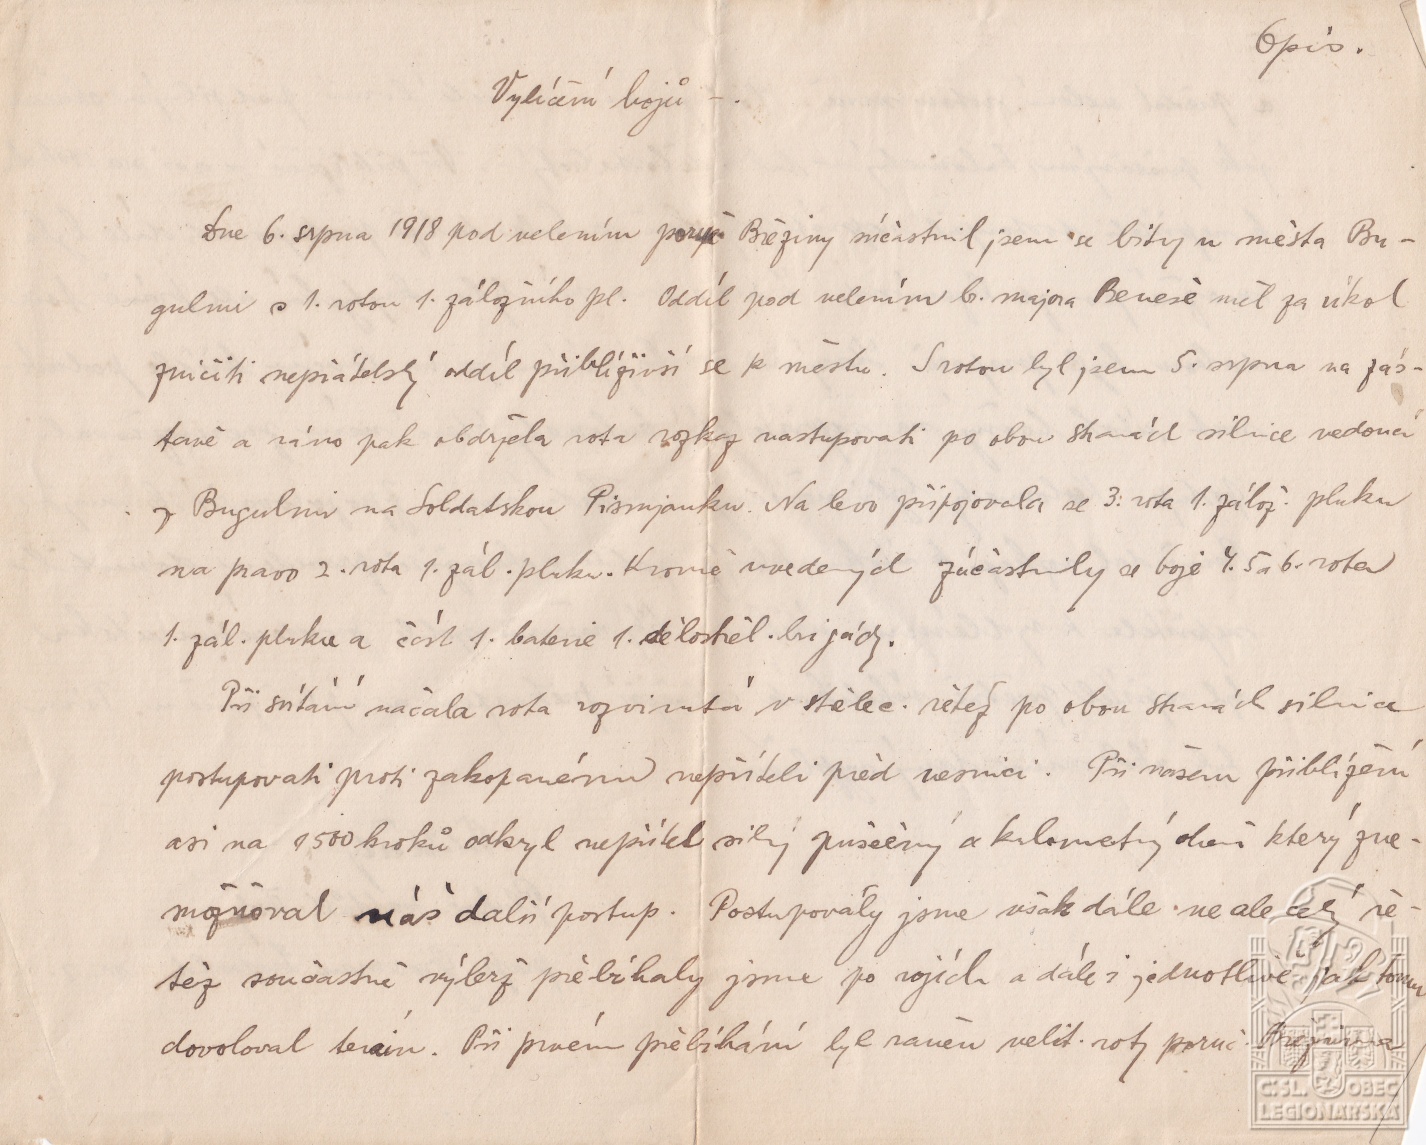 Opis.
Vylíčení bojů –.
Dne 6. srpna 1918 pod velením poruč. Březiny súčastnil jsem se bitvy u města Bu-
gulmi s 1. rotou 1. záložního pl. Oddíl pod velením b. majora Beneše měl za úkol
zničiti nepřátelský oddíl přibliživší se k městu. S rotou byl jsem 5. srpna na zás-
tavě a ráno pak obdržela rota rozkaz nastupovati po obou stranách silnice vedoucí
z Bugulmi na Soldatskou Pismjanku. Na levo připojovala se 3. rota 1. zálož. pluku
na pravo 2. rota 1. zál. pluku. Kromě uvedených zúčastnily se boje 4. 5 a 6. rota
1. zál. pluku a část 1. baterie 1. dělostřel. brigády.
Při svítání načala rota rozvinutá v střelec. řetěz po obou stranách silnice
postupovati proti zakopanému nepříteli před vesnicí. Při našem přiblížení
asi na 1500 kroků odkryl nepřítel silný pušečný a kulometný oheň který zne-
možňoval náš další postup. Postupovály jsme však dále ne ale celý ře-
těz současně výběrž přebíhaly jsme po rojích a dále i jednotlivě jak tomu
dovoloval terén. Při prvém přebíhání byl raněn velit. roty poruč. Březina
C.SL. OBEC
LEGIONÁŘSKÁ